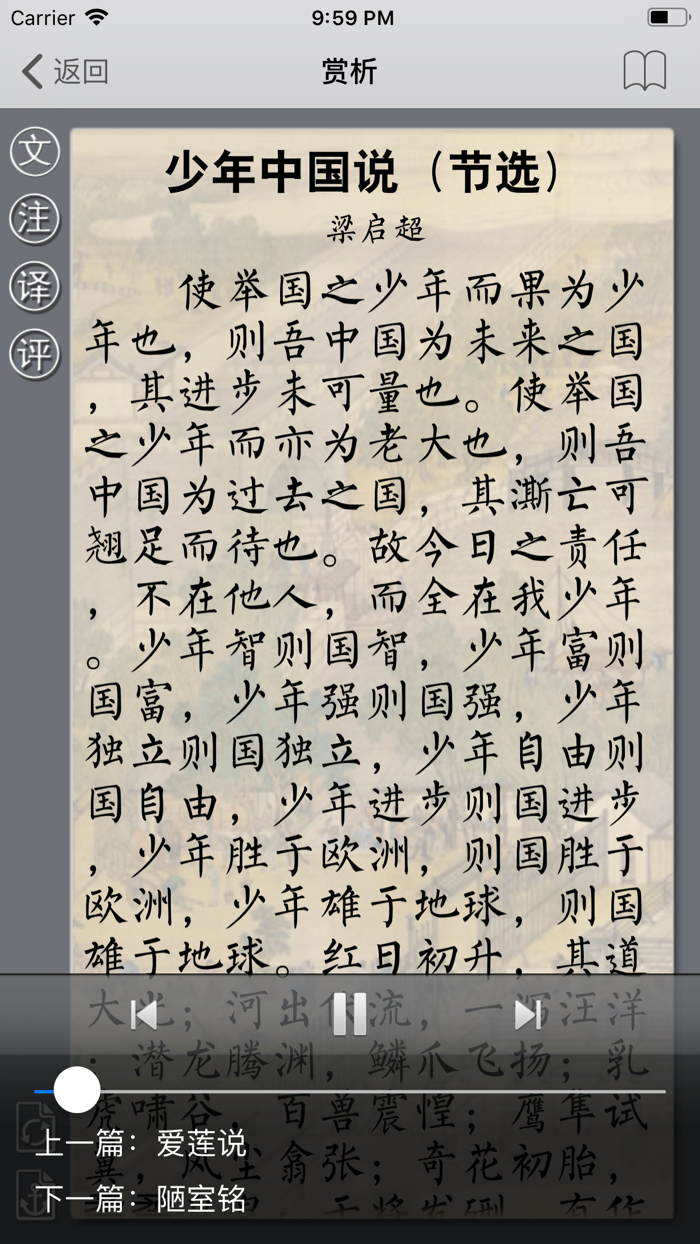 Carrier 9:59 PM
返回 赏析
文
注
译
评
少年中国说（节选）
梁启超
使举国之少年而果为少
年也，则吾中国为未来之国
，其进步未可量也。使举国
之少年而亦为老大也，则吾
中国为过去之国，其澌亡可
翘足而待也。故今日之责任
，不在他人，而全在我少年
。少年智则国智，少年富则
国富，少年强则国强，少年
独立则国独立，少年自由则
国自由，少年进步则国进步
，少年胜于欧洲，则国胜于
欧洲，少年雄于地球，则国
雄于地球。红日初升，其道
大光；河出伏流，一泻汪洋
；潜龙腾渊，鳞爪飞扬；乳
虎啸谷，百兽震惶；鹰隼试
翼，风尘翕张；奇花初胎，
上一篇：爱莲说
下一篇：陋室铭